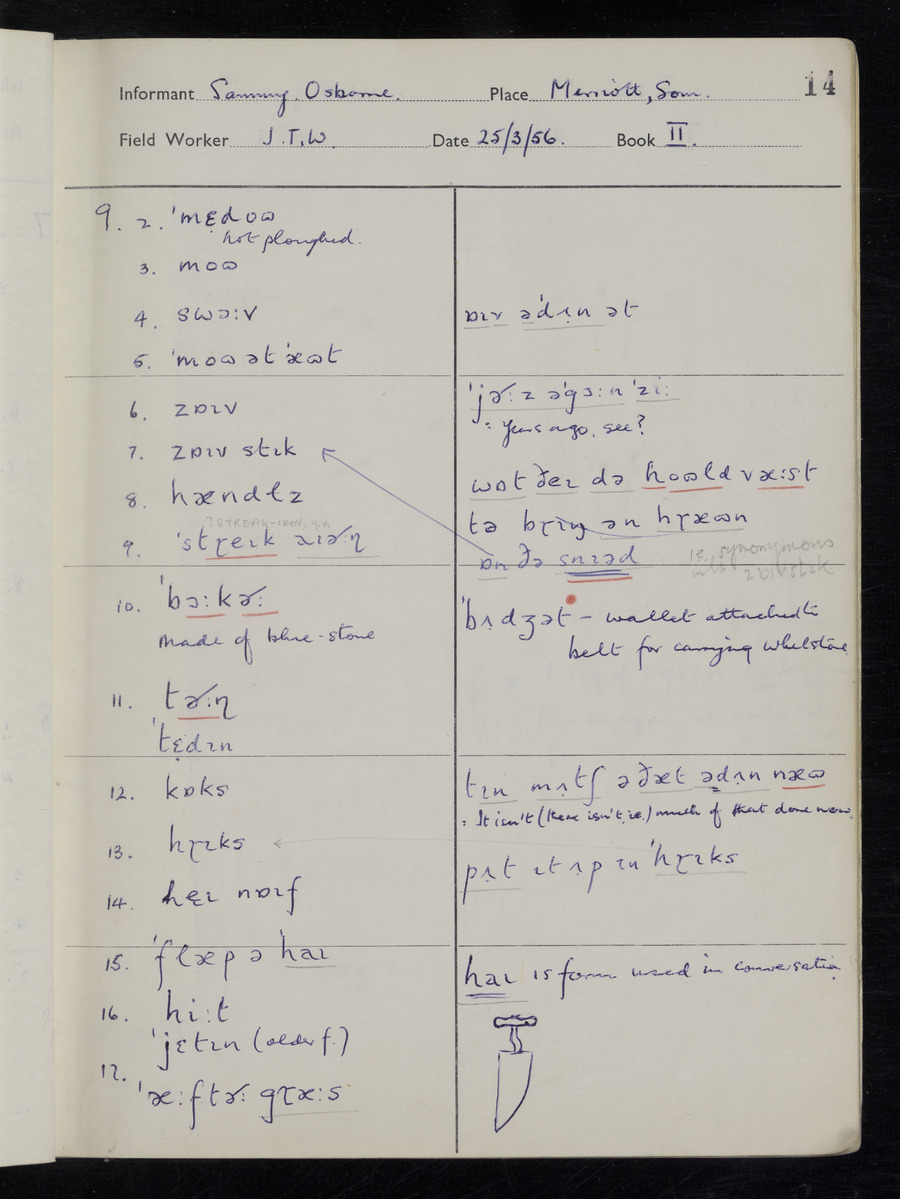 14
Informant Sammy Osborne. Place Merriott, Som.
Field Worker J.T.W. Date 25/3/56. Book II.
9. 2. ˈmɛ̣doɷ
not ploughed.
3. moɷ
4. swɔ:v
5. ˈmoɷ ət ˈæɷt
6. zɒɪv
7. zɒɪv stɪk
8. hændɫz
? STREAK-IRON, q.v.
9. ˈstɽeɪk aɪɚɳ
10. ˈbɔ:kɚ:
made of blue-stone
11. tɚ:ɳ
ˈtɛ̣dɪn
12. kɒks
13. hɽɪks
14. hɛɪ nɒɪf
15. ˈflæp ə haɪ
16. hi:t
ˈjɛtɪn (older f.)
17. ˈæ:ftɚ: gɽæ:s
ɒɪv əˈdʌ̣n ət
ˈjɚ:z əˈgɔ:n ˈzi:
= Years ago, see?
wɒt ðeɪ də hoɷld væ:st
tə bɽɪŋ ən hɽæɷn
ɒn ðə snɪəd
ie. synonymous
with zɒɪv stɪk
ˈbʌ̣dʒət – wallet attached to
belt for carrying whetstone
tɪn mʌ̣tʃ ə ðæt ədʌ̣n næɷ
= It isn't (there isn't, i.e.) much of that done now.
pʌ̣t ɪt ʌp ɪn ˈhɽɪks
haɪ is form used in conversation